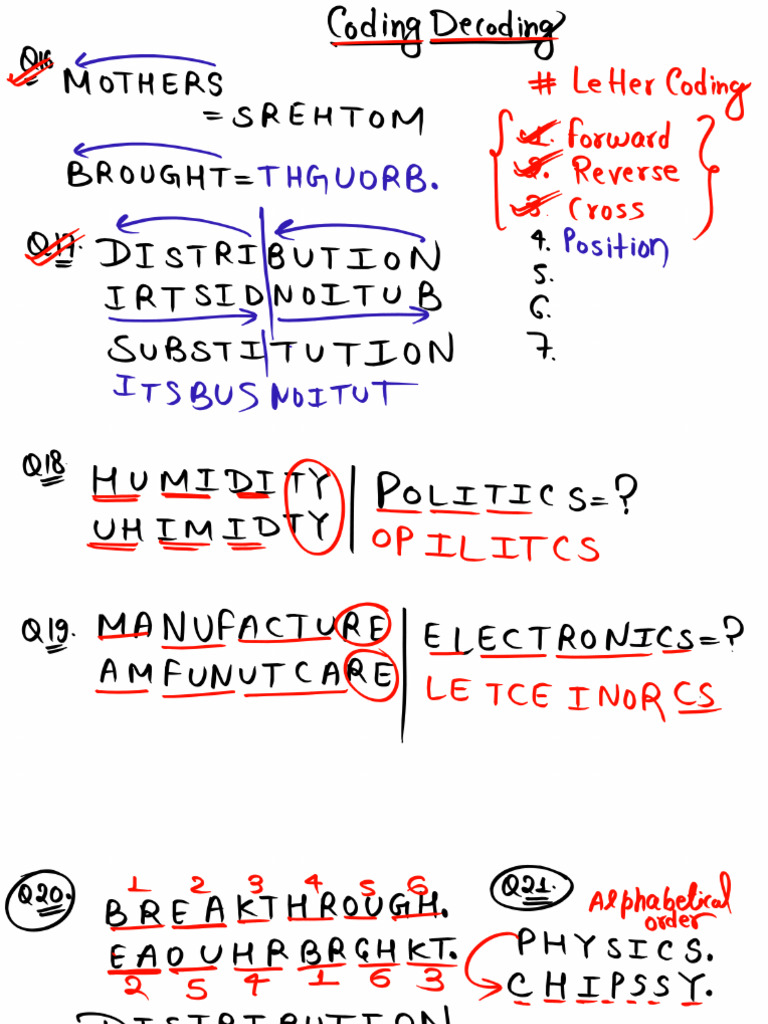 Coding Decoding
# Letter Coding
1. Forward
2. Reverse
3. Cross
4. Position
5.
6.
7.
Q16
MOTHERS
= SREHTOM
BROUGHT = THGUORB.
Q17.
DISTRI BUTION
IRTSID NOITUB
SUBSTI TUTION
ITSBUS NOITUT
Q18
HUMIDITY
UHIMIDTY
POLITICS = ?
OPILITCS
Q19.
MANUFACTURE
AMFUNUTCARE
ELECTRONICS = ?
LE TCE INOR CS
Q20.
1 2 3 4 5 6
BREAKTHROUGH.
EAOUHRBRGHKT.
2 5 4 1 6 3
DISTRIBUTION
Q21.
Alphabetical
order
PHYSICS.
CHIPSSY.